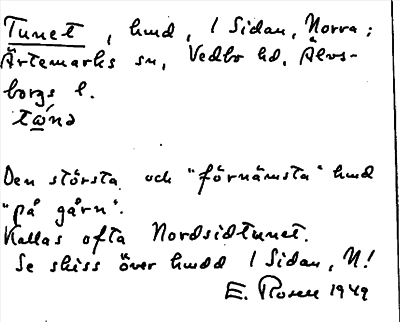 Tunet, hmd, 1 Sidan, Norra;
Ärtemarks sn, Vedbo hd, Älvs-
borgs l.
tώ̲nə
Den största och "förnämsta" hmd
"på gårn".
Kallas ofta Nordsidtunet.
Se skiss över hmdd 1 Sidan, N!
E. Rosell 1949